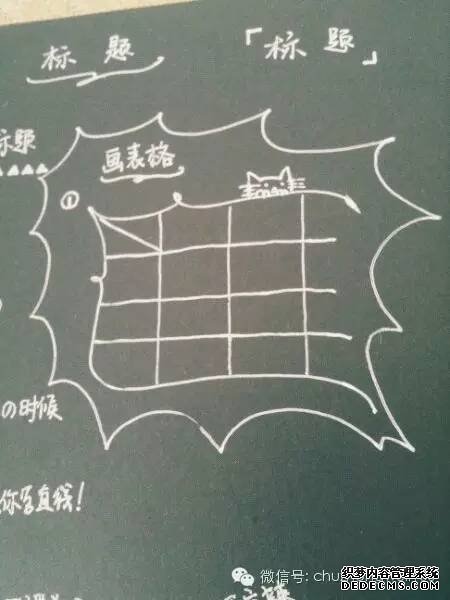 标题
「标题」
标题
画表格
①
の时候
你写直线！
微信号: chu
织梦内容管理系统
DEDECMS.COM